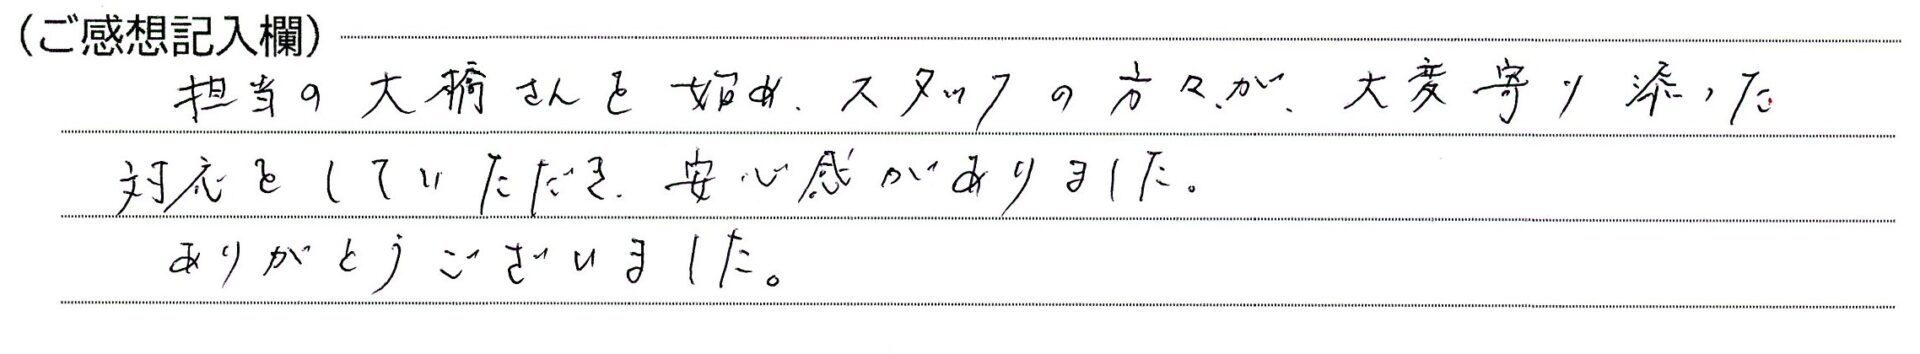 (ご感想記入欄)
担当の大橋さんを始め、スタッフの方々が、大変寄り添った
対応をしていただき、安心感がありました。
ありがとうございました。